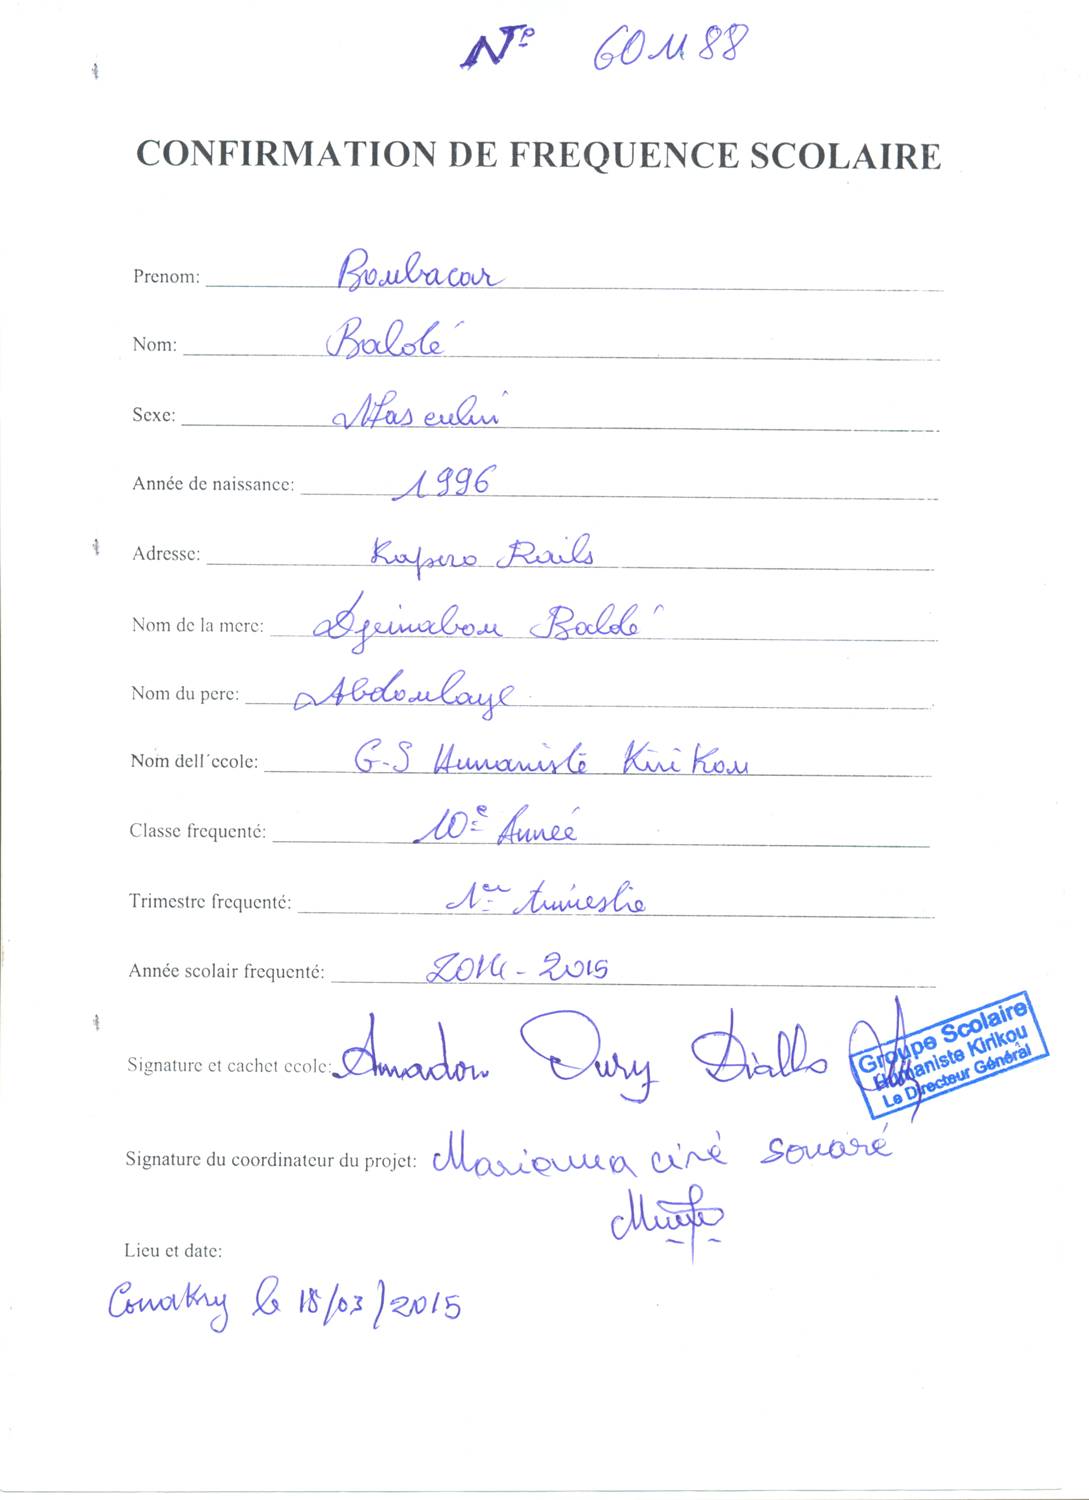 Nº 601188
CONFIRMATION DE FREQUENCE SCOLAIRE
Prenom: Boubacar
Nom: Baldé
Sexe: Masculin
Année de naissance: 1996
Adresse: Kapero Rails
Nom de la mere: Djeinabou Baldé
Nom du pere: Abdoulaye
Nom dell´ecole: G-S Humaniste Kirikou
Classe frequenté: 10e Année
Trimestre frequenté: 1er trimestre
Année scolair frequenté: 2014-2015
Signature et cachet ecole: Amadou Oury Diallo
Groupe Scolaire
Humaniste Kirikou
Le Directeur Général
Signature du coordinateur du projet: Mariama ciré souaré
Lieu et date:
Conakry le 18/03/2015